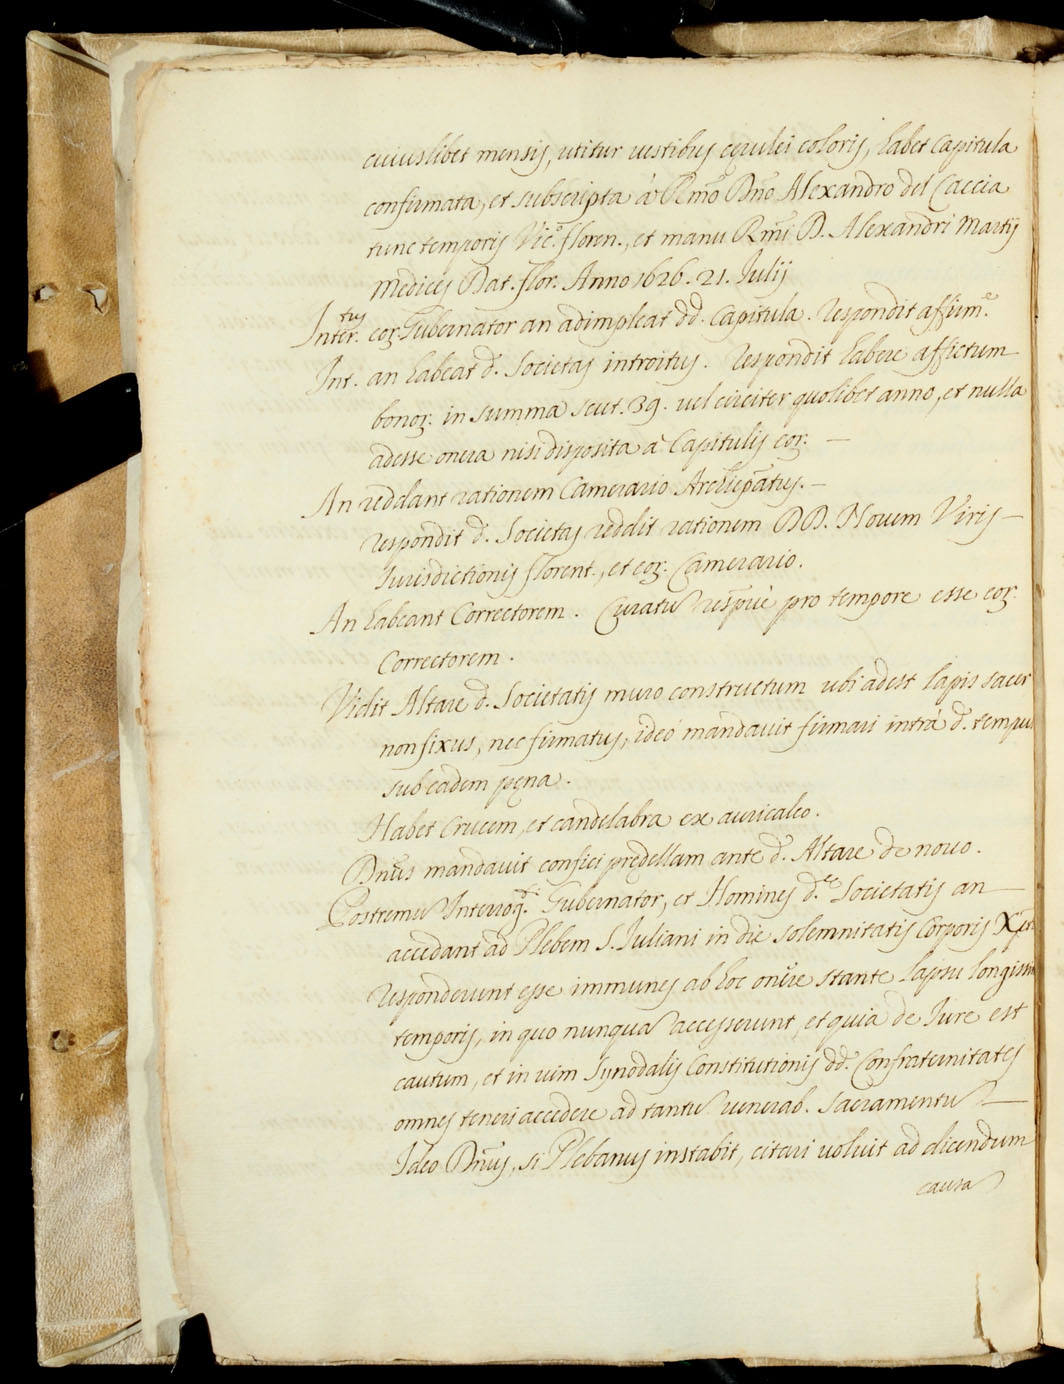 cuiuslibet mensis, utitur vestibus cęrulei coloris, habet Capitula
confirmata, et subscripta à R̃mo Dño Alexandro del Caccia
tunc temporis Vic.º floren., et manu R̃mi D. Alexandri Martij
Medices Dat. flor. Anno 1626. 21. Julij
Inter.tus eoꝝ. Gubernator an adimpleat dd. Capitula. respondit affirm.e
Int. an habeat d. Societas introitus. respondit habere affictum
bonoꝝ. in summa scut. 39. vel circiter quolibet anno, et nulla
adesse onera nisi disposita à Capitulis eoꝝ. —
An reddant rationem Camerario Archiep̃atus. —
respondit d. Societas reddit rationem DD. Novem Viris —
Jurisdictionis florent., et eoꝝ. Camerario.
An habeant Correctorem. Curatũ resp̃ve pro tempore esse eoꝝ.
Correctorem.
Vidit Altare d. Societatis muro constructum ubi adest lapis sacer
non fixus, nec firmatus, ideo mandavit firmari intrà d. tempus
sub eadem pęna.
Habet Crucem, et candelabra ex auricalco.
Dñus mandavit confici prędellam ante d. Altare de novo.
Postremũ Interrog.ti Gubernator, et Homines d.e Societatis an —
accedant ad Plebem S. Juliani in die solemnitatis Corporis Xp̃i
responderunt esse immunes ab hoc onere stante lapsu longissi
temporis, in quo nunquã accesserunt, et quia de Jure est
cautum, et in vim Synodalis Constitutionis dd. Confraternitates
omnes teneri accedere ad tantũ venerab. Sacramentũ —
Ideo Dñus, si Plebanus instabit, citari voluit ad dicendum
causã